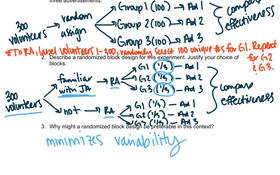 three advertisements.
300 volunteers → random assign → Group 1 (100) → Ad 1
Group 2 (100) → Ad 2
Group 3 (100) → Ad 3
compare effectiveness
* TO RA, label volunteers 1-300, randomly select 100 unique #s for G1. Repeat
for G2
& G3.
2. Describe a randomized block design for this experiment. Justify your choice of
blocks.
300 volunteers → familiar with JA → RA → G1 (1/3) — Ad 1
G2 (1/3) — Ad 2
G3 (1/3) — Ad 3
not → RA → G1 (1/3) — Ad 1
G2 (1/3) — Ad 2
G3 (1/3) — Ad 3
compare effectiveness
3. Why might a randomized block design be preferable in this context?
minimizes variability